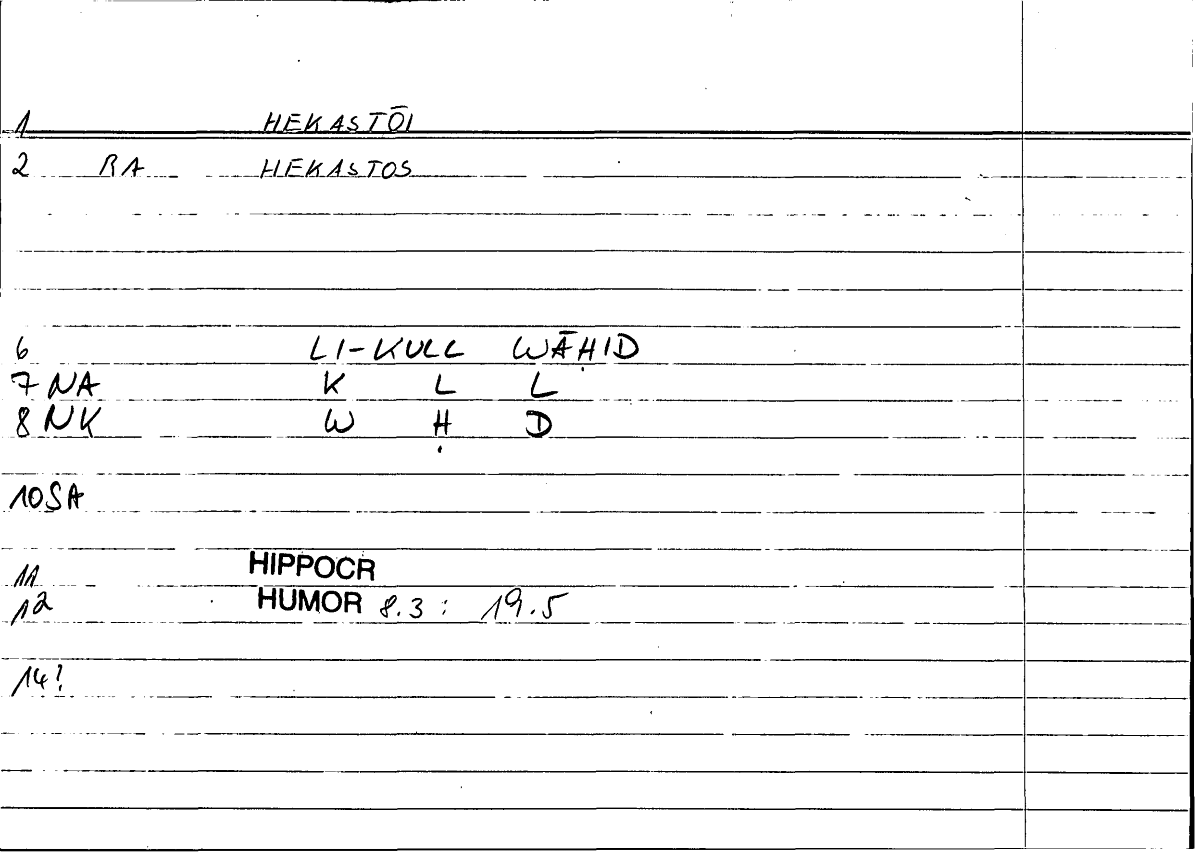 1 HEKASTŌI
2 RA HEKASTOS
6 LI-KULL WĀḤID
7 NA K L L
8 NK W Ḥ D
10 SA
11 HIPPOCR
12 HUMOR 8.3 : 19.5
14!